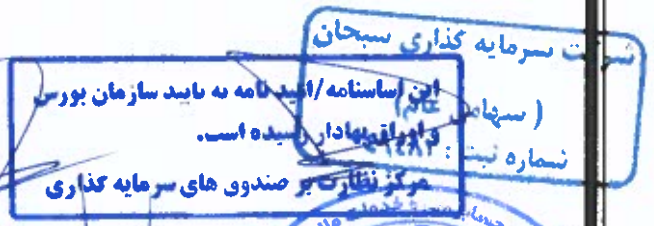 شرکت سرمایه گذاری سبحان
( سهامی عام)
شماره ثبت :
این اساسنامه/امید نامه به تایید سازمان بورس
و اوراق بهادار رسیده است.
مرکز نظارت بر صندوق های سرمایه گذاری